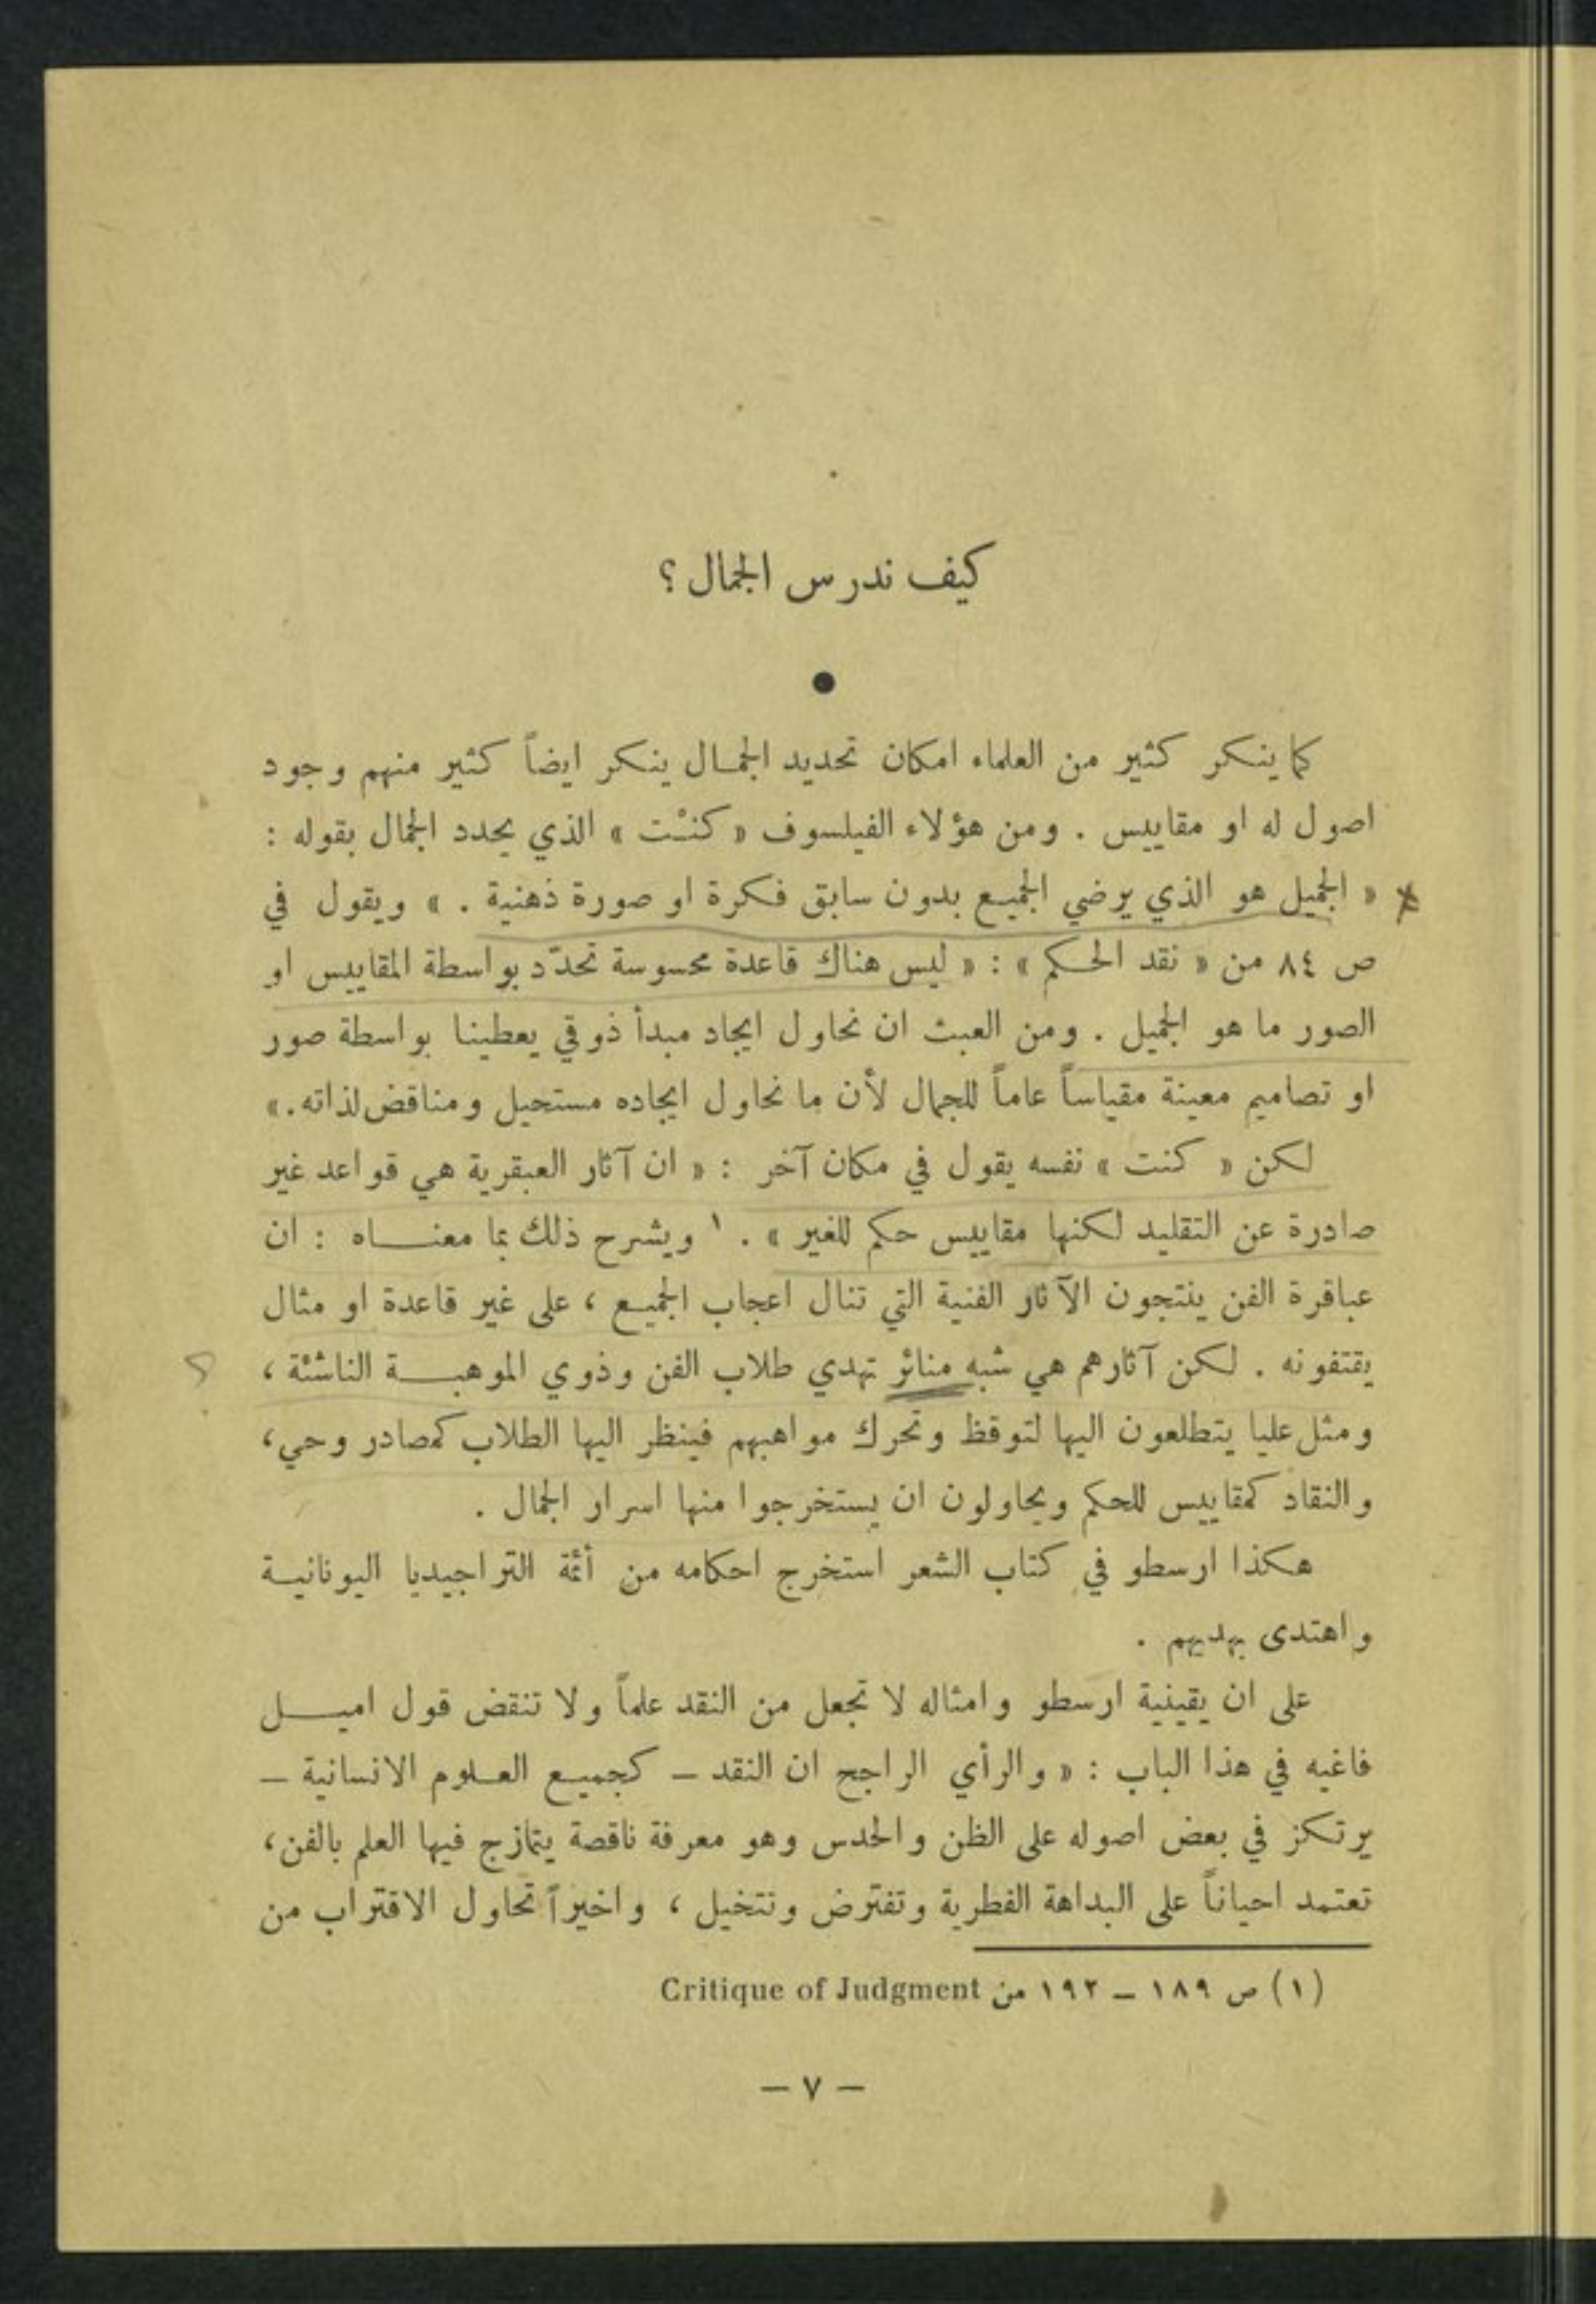 كيف ندرس الجمال ؟
●
كما ينكر كثير من العلماء امكان تحديد الجمـال ينكر ايضاً كثير منهم وجود
اصول له او مقاييس . ومن هؤلاء الفيلسوف « كنْت » الذي يحدد الجمال بقوله :
« الجميل هو الذي يرضي الجميع بدون سابق فكرة او صورة ذهنية . » ويقول في
ص ٨٤ من « نقد الحكم » : « ليس هناك قاعدة محسوسة تحدّد بواسطة المقاييس او
الصور ما هو الجميل . ومن العبث ان نحاول ايجاد مبدأ ذوقي يعطينا بواسطة صور
او تصاميم معينة مقياساً عاماً للجمال لأن ما نحاول ايجاده مستحيل ومناقض لذاته . »
لكن « كنت » نفسه يقول في مكان آخر : « ان آثار العبقرية هي قواعد غير
صادرة عن التقليد لكنها مقاييس حكم للغير » . ١ ويشرح ذلك بما معنـــاه : ان
عباقرة الفن ينتجون الآثار الفنية التي تنال اعجاب الجميع ، على غير قاعدة او مثال
يقتفونه . لكن آثارهم هي شبه منائر تهدي طلاب الفن وذوي الموهبـــة الناشئة ،
ومثل عليا يتطلعون اليها لتوقظ وتحرك مواهبهم فينظر اليها الطلاب كمصادر وحي ،
والنقاد كمقاييس للحكم ويحاولون ان يستخرجوا منها اسرار الجمال .
هكذا ارسطو في كتاب الشعر استخرج احكامه من أئمة التراجيديا اليونانية
واهتدى بهديهم .
على ان يقينية ارسطو وامثاله لا تجعل من النقد علماً ولا تنقض قول اميــل
فاغيه في هذا الباب : « والرأي الراجح ان النقد – كجميع العلوم الانسانية –
يرتكز في بعض اصوله على الظن والحدس وهو معرفة ناقصة يتمازج فيها العلم بالفن ،
تعتمد احياناً على البداهة الفطرية وتفترض وتتخيل ، واخيراً تحاول الاقتراب من
(١) ص ١٨٩ – ١٩٢ من Critique of Judgment
– ٧ –